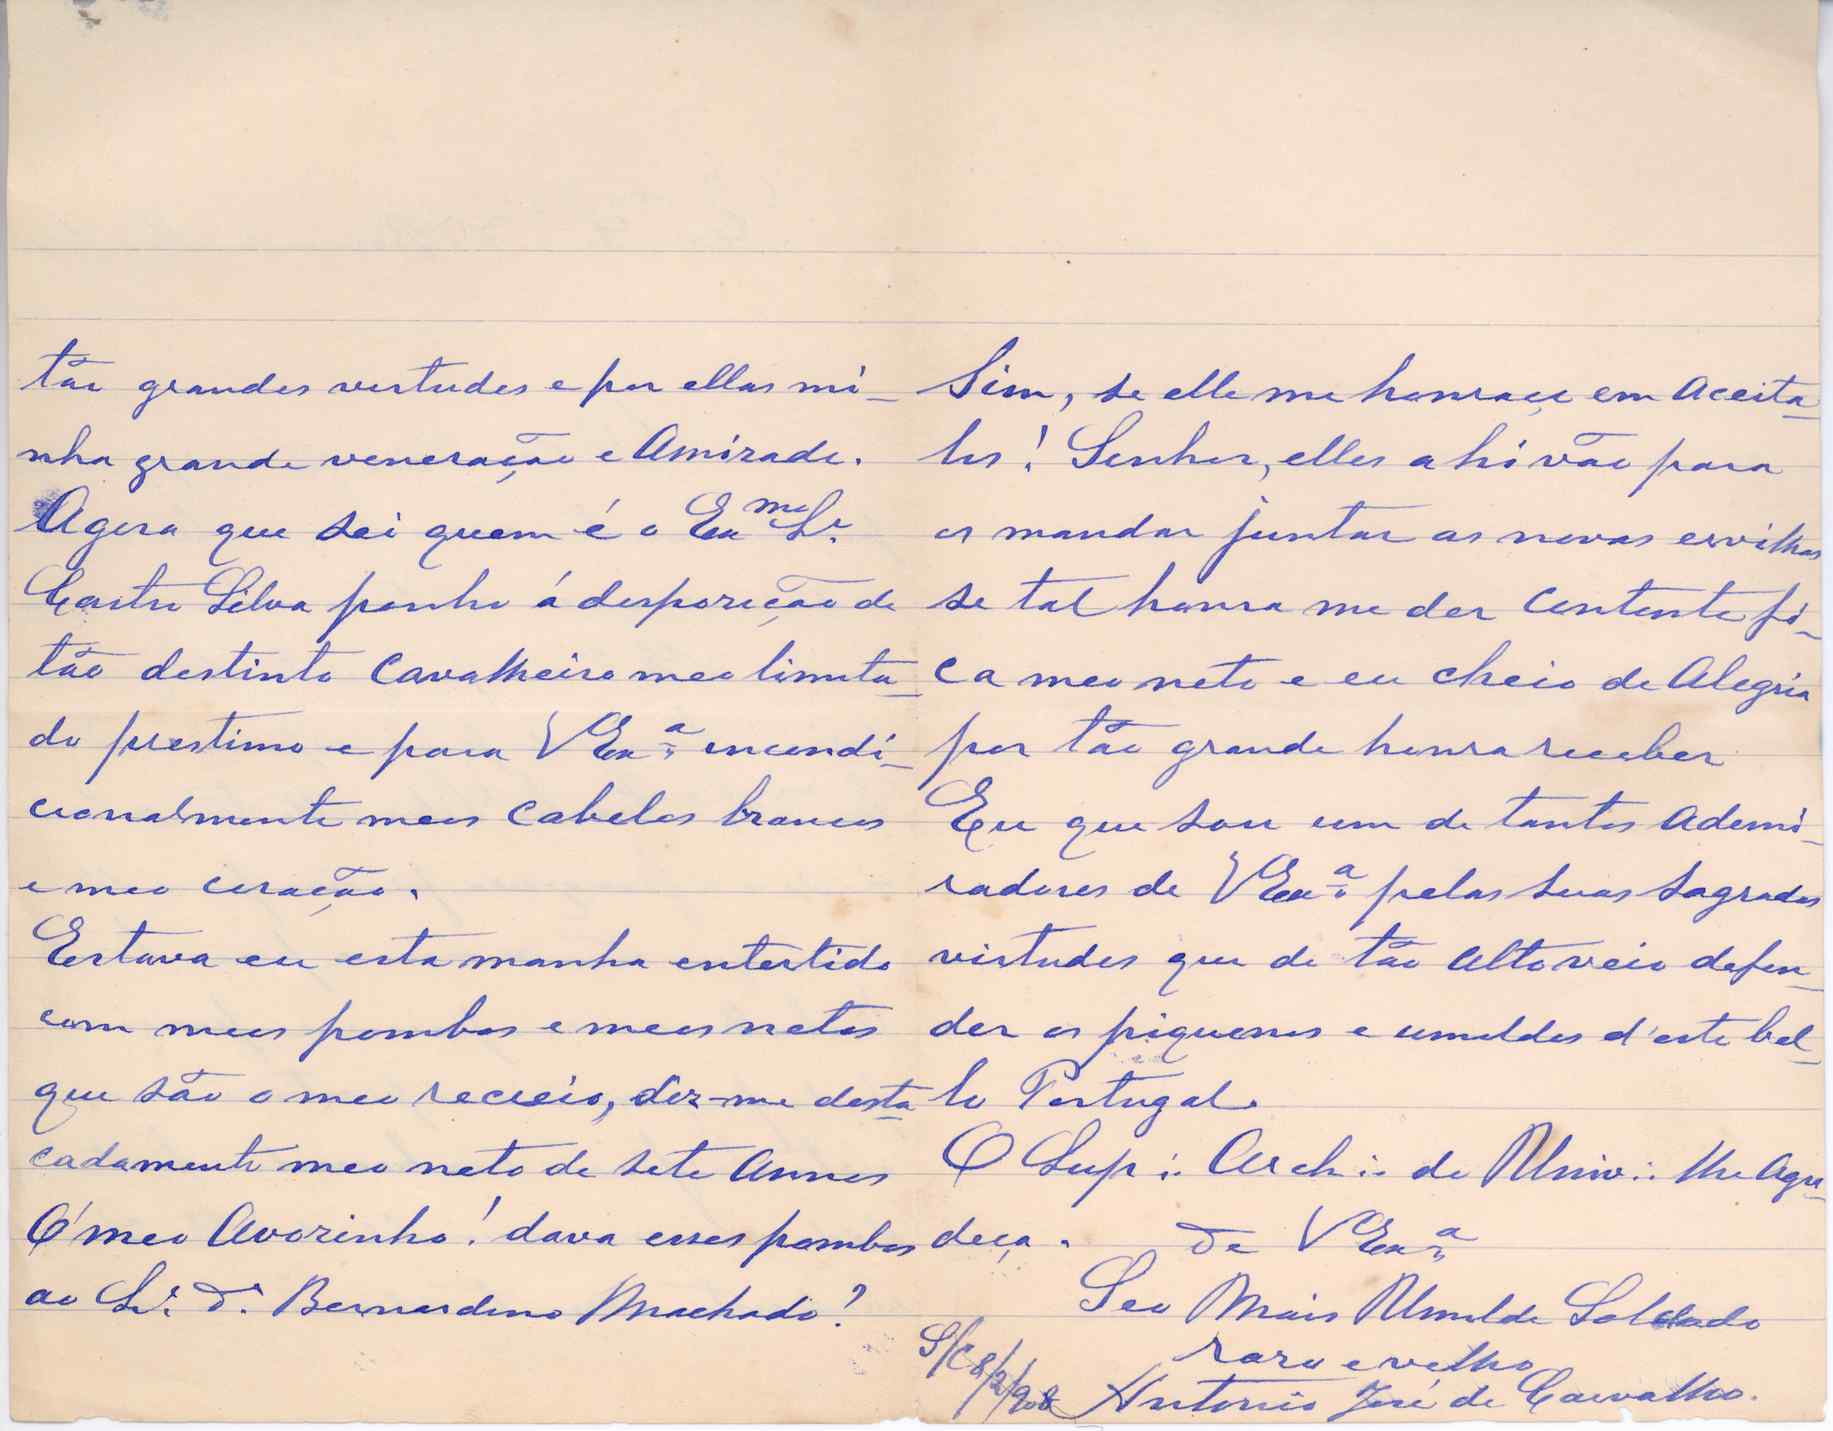 tão grandes vertudes e por ellas mi-
nha grande veneração e Amizade.
Agora que sei quem é o Exmo Sr.
Castro Silva ponho á desposeção de
tão destinto Cavalheiro meo limita-
do prestimo e para VExa. encondi-
cionalmente meos Cabelos brancos
e meo coração.
Estava eu esta manha entertido
com meos pombos e meos netos
que são o meo recreio, diz-me desta-
cadamente meo neto de sete Annos
O' meo Avozinho! dava esses pombos
ao Sr. Dr. Bernardino Machado?
Sim, se elle me honrace em Aceita-
los! Senhor, elles ahi vão para
os mandar juntar as novas ervilhas
se tal honra me der Contente fi-
ca meo neto e eu cheio de Alegria
por tão grande honra receber
Eu que sou um de tantos Ademi-
radores de VExa. pelas suas sagradas
virtudes que de tão Alto veio defen-
der os piquenos e umeldes d'este bel-
lo Portugal.
O Sup∴ Arch∴ do Univ∴ lhe Agra-
deça. De VExa.
Seo Mais Umilde Soldado
raro e velho
S/C 8/2/908 Antonio José de Carvalho.